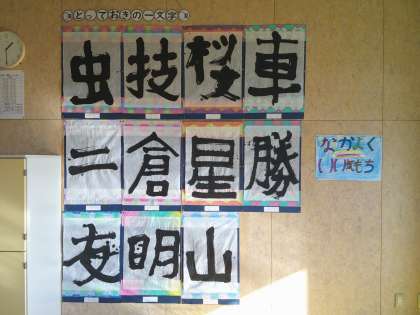 とっておきの一文字
虫 技 桜 車
二 倉 星 勝
友 明 山
なかよく
いい気もち